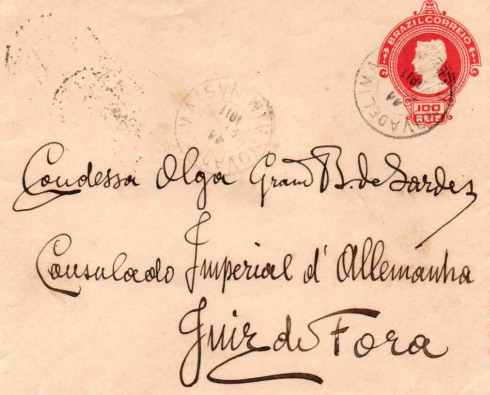 BRAZIL CORREIO
100
REIS
VA DE LIMA
NOVA DE
MINAS
Condessa Olga Grand B. de Sardes
Consulado Imperial d' Allemanha
Juiz de Fora